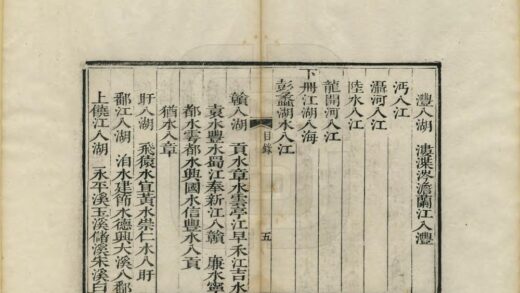 澧入湖　漊渫涔澹蘭江入澧
沔入江
灄河入江
陸水入江
龍開河入江
下冊江湖入海
彭蠡湖水入江
目錄
五
贛入湖　貢水章水雲亭江旱禾江吉水
袁水豐水蜀江奉新江入贛　廉水寧
都水雩都水興國水信豐水入貢
猶水入章
盱入湖　飛猿水宜黃水崇仁水入盱
鄱江入湖　洎水建節水德興大溪入鄱
上饒江入湖　永平溪玉溪儲溪朱溪白